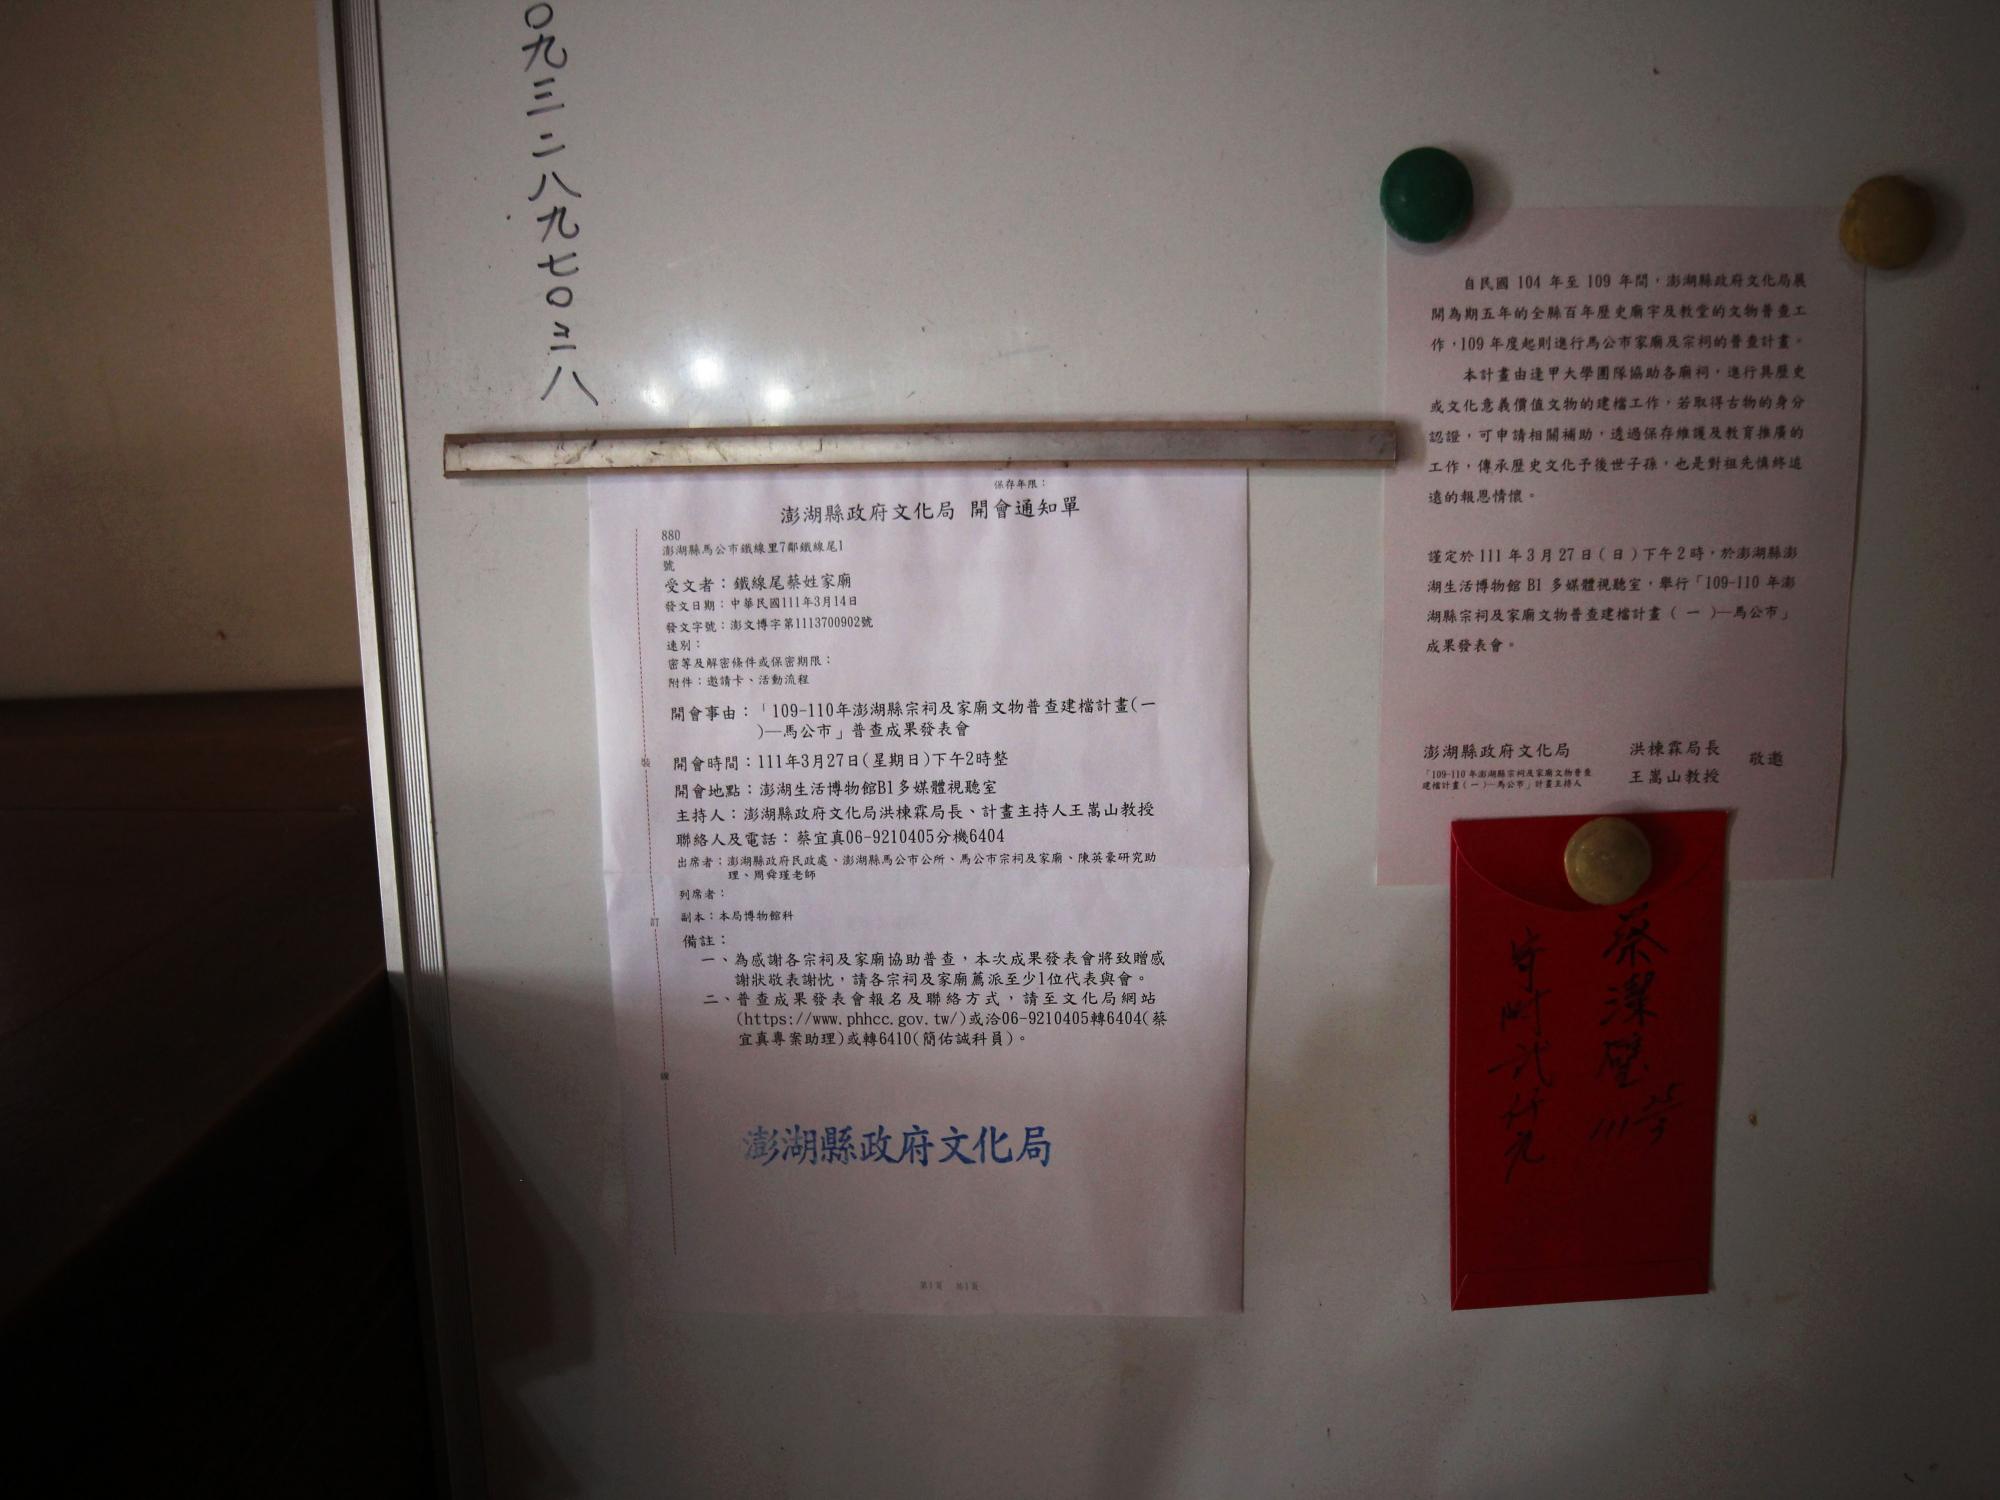 〇九三二八九七〇三八
保存年限：
澎湖縣政府文化局 開會通知單
880
澎湖縣馬公市鐵線里7鄰鐵線尾1
號
受文者：鐵線尾蔡姓家廟
發文日期：中華民國111年3月14日
發文字號：澎文博字第1113700902號
速別：
密等及解密條件或保密期限：
附件：邀請卡、活動流程
開會事由：「109-110年澎湖縣宗祠及家廟文物普查建檔計畫(一
)—馬公市」普查成果發表會
開會時間：111年3月27日(星期日)下午2時整
開會地點：澎湖生活博物館B1多媒體視聽室
主持人：澎湖縣政府文化局洪棟霖局長、計畫主持人王嵩山教授
聯絡人及電話：蔡宜真06-9210405分機6404
出席者：澎湖縣政府民政處、澎湖縣馬公市公所、馬公市宗祠及家廟、陳英豪研究助
理、周舜瑾老師
列席者：
副本：本局博物館科
備註：
一、為感謝各宗祠及家廟協助普查，本次成果發表會將致贈感
謝狀敬表謝忱，請各宗祠及家廟薦派至少1位代表與會。
二、普查成果發表會報名及聯絡方式，請至文化局網站
(https://www.phhcc.gov.tw/)或洽06-9210405轉6404(蔡
宜真專案助理)或轉6410(簡佑誠科員)。
裝
訂
線
澎湖縣政府文化局
第1頁 共1頁
自民國 104 年至 109 年間，澎湖縣政府文化局展
開為期五年的全縣百年歷史廟宇及教堂的文物普查工
作，109 年度起則進行馬公市家廟及宗祠的普查計畫。
本計畫由逢甲大學團隊協助各廟祠，進行具歷史
或文化意義價值文物的建檔工作，若取得古物的身分
認證，可申請相關補助，透過保存維護及教育推廣的
工作，傳承歷史文化予後世子孫，也是對祖先慎終追
遠的報恩情懷。
謹定於 111 年 3 月 27 日(日)下午 2 時，於澎湖縣澎
湖生活博物館 B1 多媒體視聽室，舉行「109-110 年澎
湖縣宗祠及家廟文物普查建檔計畫（一）—馬公市」
成果發表會。
澎湖縣政府文化局 洪棟霖局長
「109-110 年澎湖縣宗祠及家廟文物普查
建檔計畫(一)—馬公市」計畫主持人 王嵩山教授
敬邀
蔡潔璧 111
寄附弍仟元